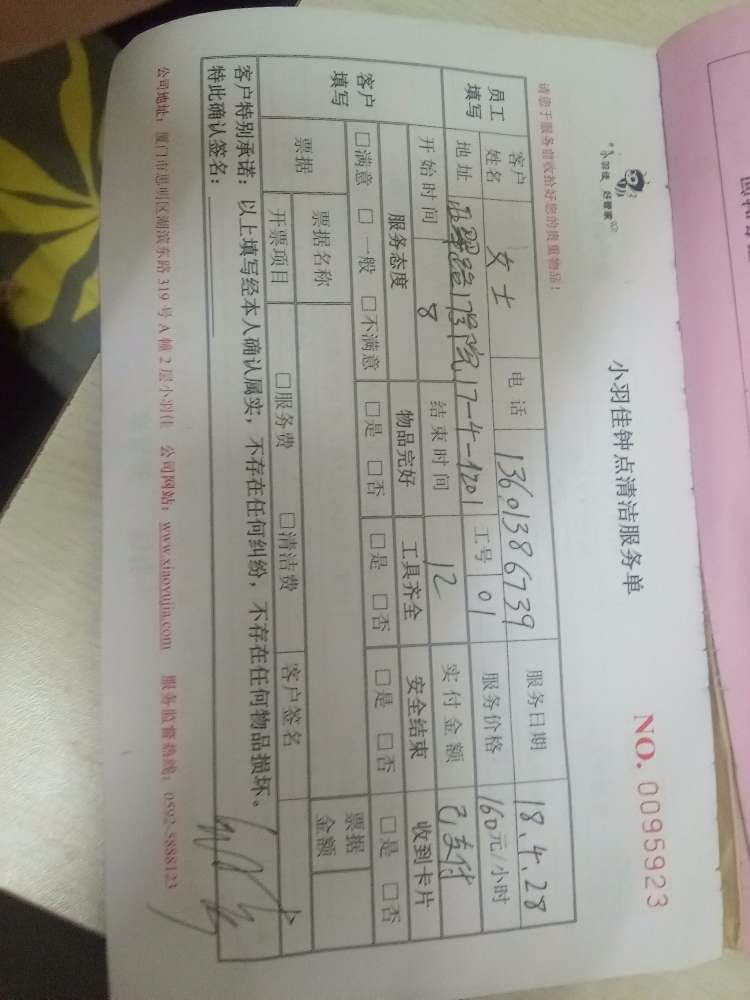 小羽佳 好管家
小羽佳钟点清洁服务单
NO. 0095923
请您于服务前收拾好您的贵重物品！
员工填写
客户姓名 女士 电话 13601386739 服务日期 18.4.28
地址 17-4-1201 工号 01 服务价格 160元/小时
开始时间 8 结束时间 12 实付金额 已支付
客户填写
服务态度 物品完好 工具齐全 安全结束 收到卡片
□满意 □一般 □不满意 □是 □否 □是 □否 □是 □否 □是 □否
票据 票据名称 票据金额
开票项目 □服务费 □清洁费 客户签名
客户特别承诺：以上填写经本人确认属实，不存在任何纠纷，不存在任何物品损坏。
特此确认签名：
公司地址：厦门市思明区湖滨东路 319 号 A 幢 2 层小羽佳 公司网站：www.xiaoyujia.com 服务监督热线：0592-5888123